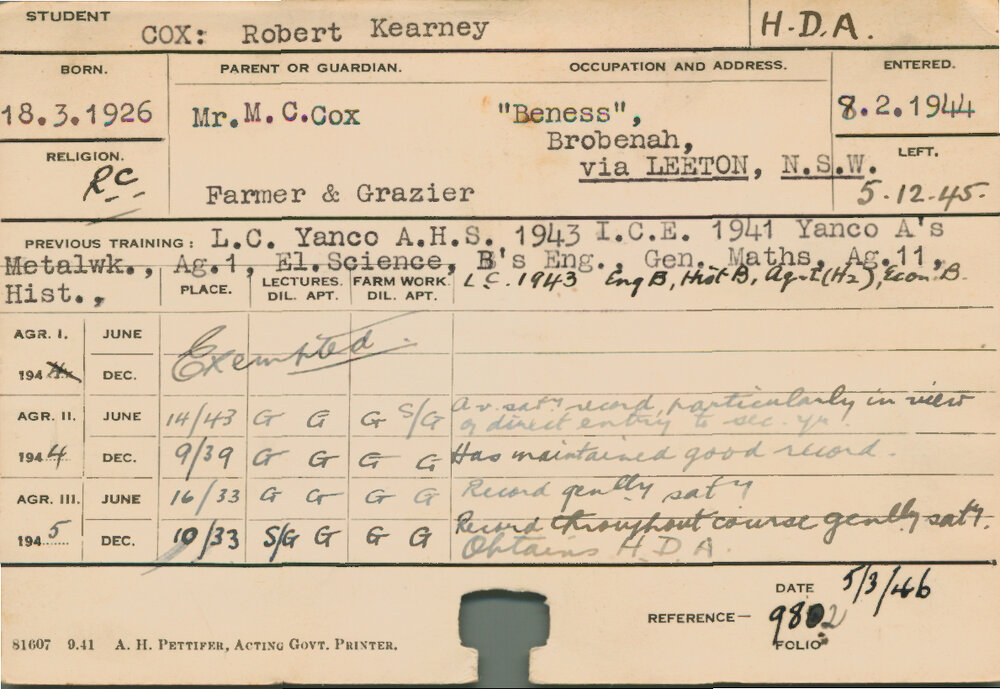 STUDENT
COX: Robert Kearney
H.D.A.
BORN. PARENT OR GUARDIAN. OCCUPATION AND ADDRESS. ENTERED.
18.3.1926 Mr. M. C. Cox "Beness", 8.2.1944
Brobenah,
RELIGION. via LEETON, N.S.W. LEFT.
R.C. Farmer & Grazier 5.12.45.
PREVIOUS TRAINING: L.C. Yanco A.H.S. 1943 I.C.E. 1941 Yanco A's
Metalwk., Ag.1, El.Science, B's Eng., Gen. Maths, Ag.11,
Hist., PLACE. LECTURES. DIL. APT. FARM WORK. DIL. APT. L.C. 1943 Eng B, Hist B, Ag. (H2), Econ. B.
AGR. I. JUNE Exempted.
194 DEC.
AGR. II. JUNE 14/43 G G G S/G A v. satty record, particularly in view
of direct entry to sec. yr.
1944 DEC. 9/39 G G G G Has maintained good record.
AGR. III. JUNE 16/33 G G G G Record genlly satty
1945 DEC. 10/33 S/G G G G Record throughout course genlly satty.
Obtains H.D.A.
DATE 5/3/46
REFERENCE— 9802
FOLIO
81607 9.41 A. H. PETTIFER, ACTING GOVT. PRINTER.